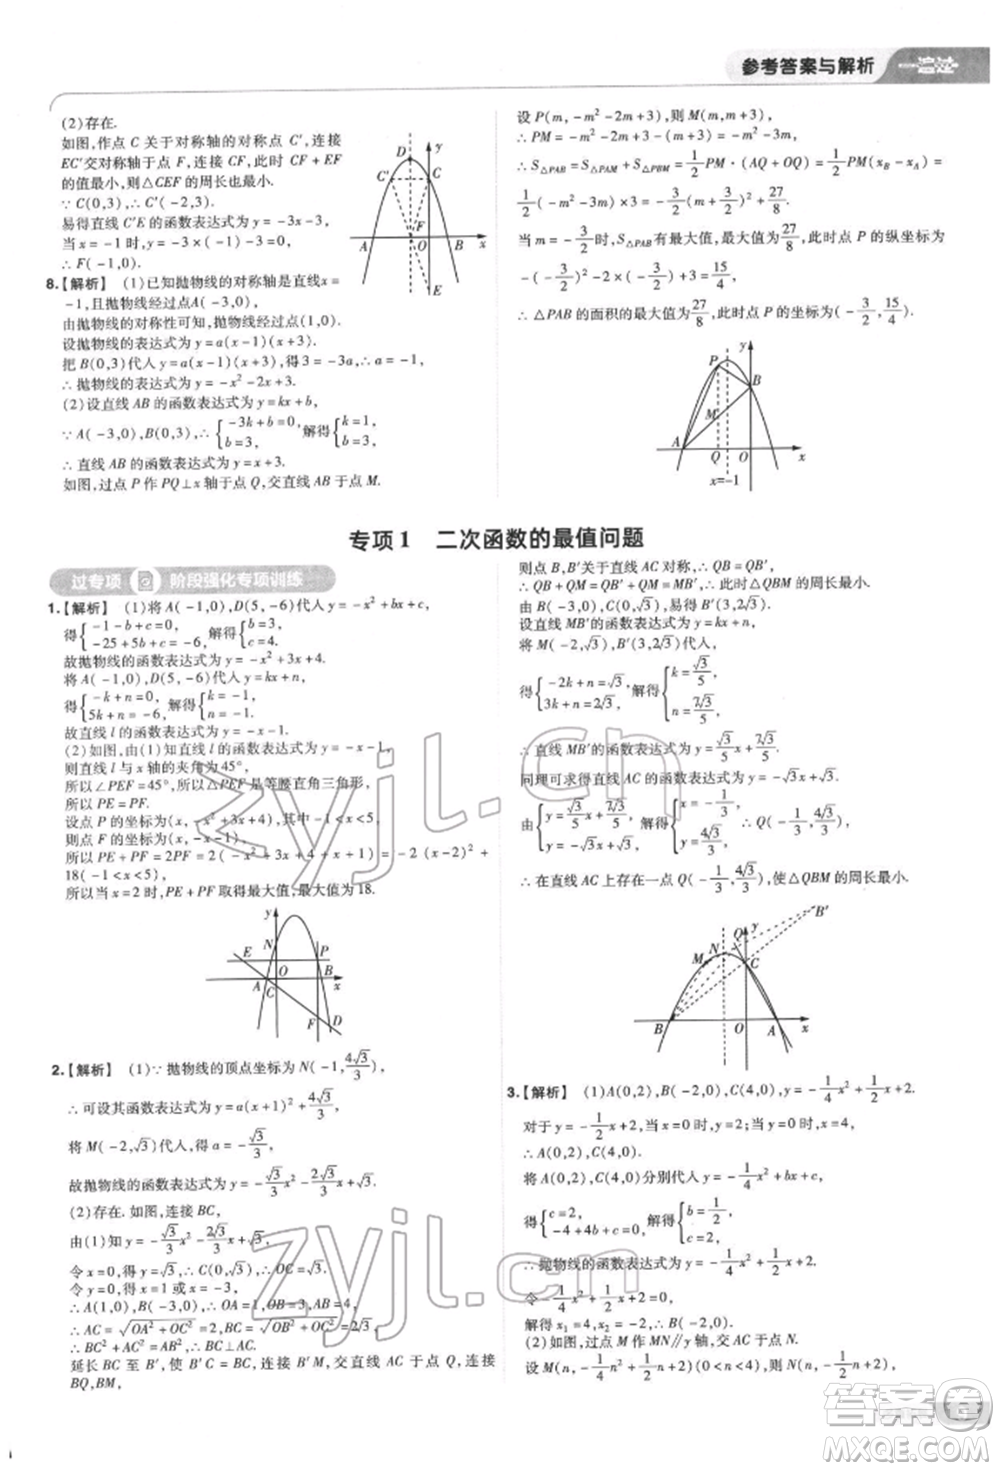 参考答案与解析 一遍过
(2)存在.
如图,作点 C 关于对称轴的对称点 C′,连接
EC′交对称轴于点 F,连接 CF,此时 CF + EF
的值最小,则△CEF 的周长也最小.
∵ C(0,3),∴ C′( -2,3).
易得直线 C′E 的函数表达式为 y = -3x -3,
当 x = -1 时,y = -3 ×( -1) -3 =0,
∴ F( -1,0).
8.【解析】 (1)已知抛物线的对称轴是直线x =
-1,抛物线经过点A( -3,0),
由抛物线的对称性可知,抛物线经过点(1,0),
设抛物线的表达式为 y = a(x -1)(x +3).
把 B(0,3)代入 y = a(x -1)(x +3),得3 = -3a,∴ a = -1,
∴ 抛物线的表达式为 y = -x² -2x +3.
(2)设直线 AB 的函数表达式为 y = kx + b,
∵ A( -3,0),B(0,3),∴ { -3k + b =0, b =3, 解得 { k =1, b =3,
∴ 直线 AB 的函数表达式为 y = x +3.
如图,过点 P 作 PQ⊥x 轴于点 Q,交直线 AB 于点 M.
设 P(m, -m² -2m +3),则 M(m,m +3),
∴ PM = -m² -2m +3 -(m +3) = -m² -3m,
∴ S△PAB = S△PAM + S△PBM = 1/2 PM·(AQ + OQ) = 1/2 PM(x_B - x_A) =
1/2( -m² -3m) ×3 = -3/2(m + 3/2)² + 27/8.
当 m = -3/2时,S△PAB有最大值,最大值为27/8,此时点 P 的纵坐标为
-( -3/2)² -2 ×( -3/2) +3 = 15/4,
∴ △PAB 的面积的最大值为27/8,此时点 P 的坐标为( -3/2, 15/4).
专项 1 二次函数的最值问题
过专项 阶段强化专项训练
1.【解析】 (1)将 A( -1,0),D(5, -6)代入 y = -x² + bx + c,
得 { -1 - b + c =0, -25 +5b + c = -6, 解得 { b =3, c =4.
故抛物线的函数表达式为 y = -x² +3x +4.
将 A( -1,0),D(5, -6)代入 y = kx + n,
得 { -k + n =0, 5k + n = -6, 解得 { k = -1, n = -1.
故直线 l 的函数表达式为 y = -x -1.
(2)如图,由(1)知直线 l 的函数表达式为 y = -x -1,
则直线 l 与 x 轴的夹角为 45°,
所以∠PEF =45°,所以△PEF 是等腰直角三角形,
所以 PE = PF.
设点 P 的坐标为(x, -x² +3x +4),其中 -1 <x <5,
则点 F 的坐标为(x, -x -1),
所以 PE + PF =2PF =2( -x² +3x +4 + x +1) = -2 (x -2)² +
18( -1 <x <5),
所以当 x =2 时,PE + PF 取得最大值,最大值为 18.
2.【解析】 (1)∵ 抛物线的顶点坐标为 N( -1, 4√3/3),
∴ 可设其函数表达式为 y = a(x +1)² + 4√3/3,
将 M( -2,√3)代入,得 a = -√3/3,
故抛物线的函数表达式为 y = -√3/3 x² - 2√3/3 x + √3.
(2)存在. 如图,连接 BC,
由(1)知 y = -√3/3 x² - 2√3/3 x + √3,
令 x =0,则 y = √3,∴ C(0,√3),∴ OC = √3,
令 y =0,得 x =1 或 x = -3,
∴ A(1,0),B( -3,0),∴ OA =1,OB =3,AB =4,
∴ AC = √(OA² + OC²) =2,BC = √(OB² + OC²) =2√3,
∴ BC² + AC² = AB²,∴ BC⊥AC.
延长 BC 至 B′,使 B′C = BC,连接 B′M,交直线 AC 于点 Q,连接
BQ,BM,
则点 B,B′关于直线 AC 对称,∴ QB = QB′,
∴ QB + QM = QB′ + QM = MB′,此时△QBM 的周长最小.
由 B( -3,0),C(0,√3),易得 B′(3,2√3).
设直线 MB′的函数表达式为 y = kx + n,
将 M( -2,√3),B′(3,2√3)代入,
得 { -2k + n = √3, 3k + n =2√3, 解得 { k = √3/5, n = 7√3/5,
∴ 直线 MB′的函数表达式为 y = √3/5 x + 7√3/5.
同理可求得直线 AC 的函数表达式为 y = -√3x + √3.
由 { y = √3/5 x + 7√3/5, y = -√3x + √3, 解得 { x = -1/3, y = 4√3/3, ∴ Q( -1/3, 4√3/3).
∴ 在直线 AC 上存在一点 Q( -1/3, 4√3/3),使△QBM 的周长最小.
3.【解析】 (1)A(0,2),B( -2,0),C(4,0),y = -1/4 x² + 1/2 x +2.
对于 y = -1/2 x +2,当 x =0 时,y =2;当 y =0 时,x =4,
∴ A(0,2),C(4,0).
将 A(0,2),C(4,0)分别代入 y = -1/4 x² + bx + c,
得 { c =2, -4 +4b + c =0, 解得 { b = 1/2, c =2,
∴ 抛物线的函数表达式为 y = -1/4 x² + 1/2 x +2.
令 -1/4 x² + 1/2 x +2 =0,
解得 x₁ =4,x₂ = -2,∴ B( -2,0).
(2)如图,过点 M 作 MN∥y 轴,交 AC 于点 N.
设 M(n, -1/4 n² + 1/2 n +2)(0 <n <4),则 N(n, -1/2 n +2),
zyjl.cn
zyjl.cn
答案圈
MXQE.COM